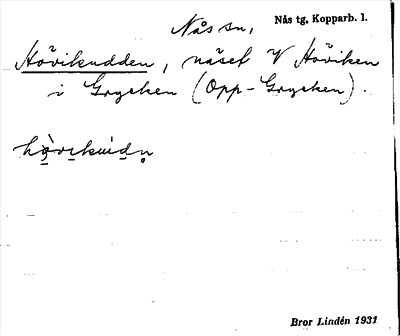 Nås sn,
Nås tg, Kopparb. l.
Hövikudden, näset V Höviken
i Grycken (Opp-Grycken).
Bror Lindén 1931